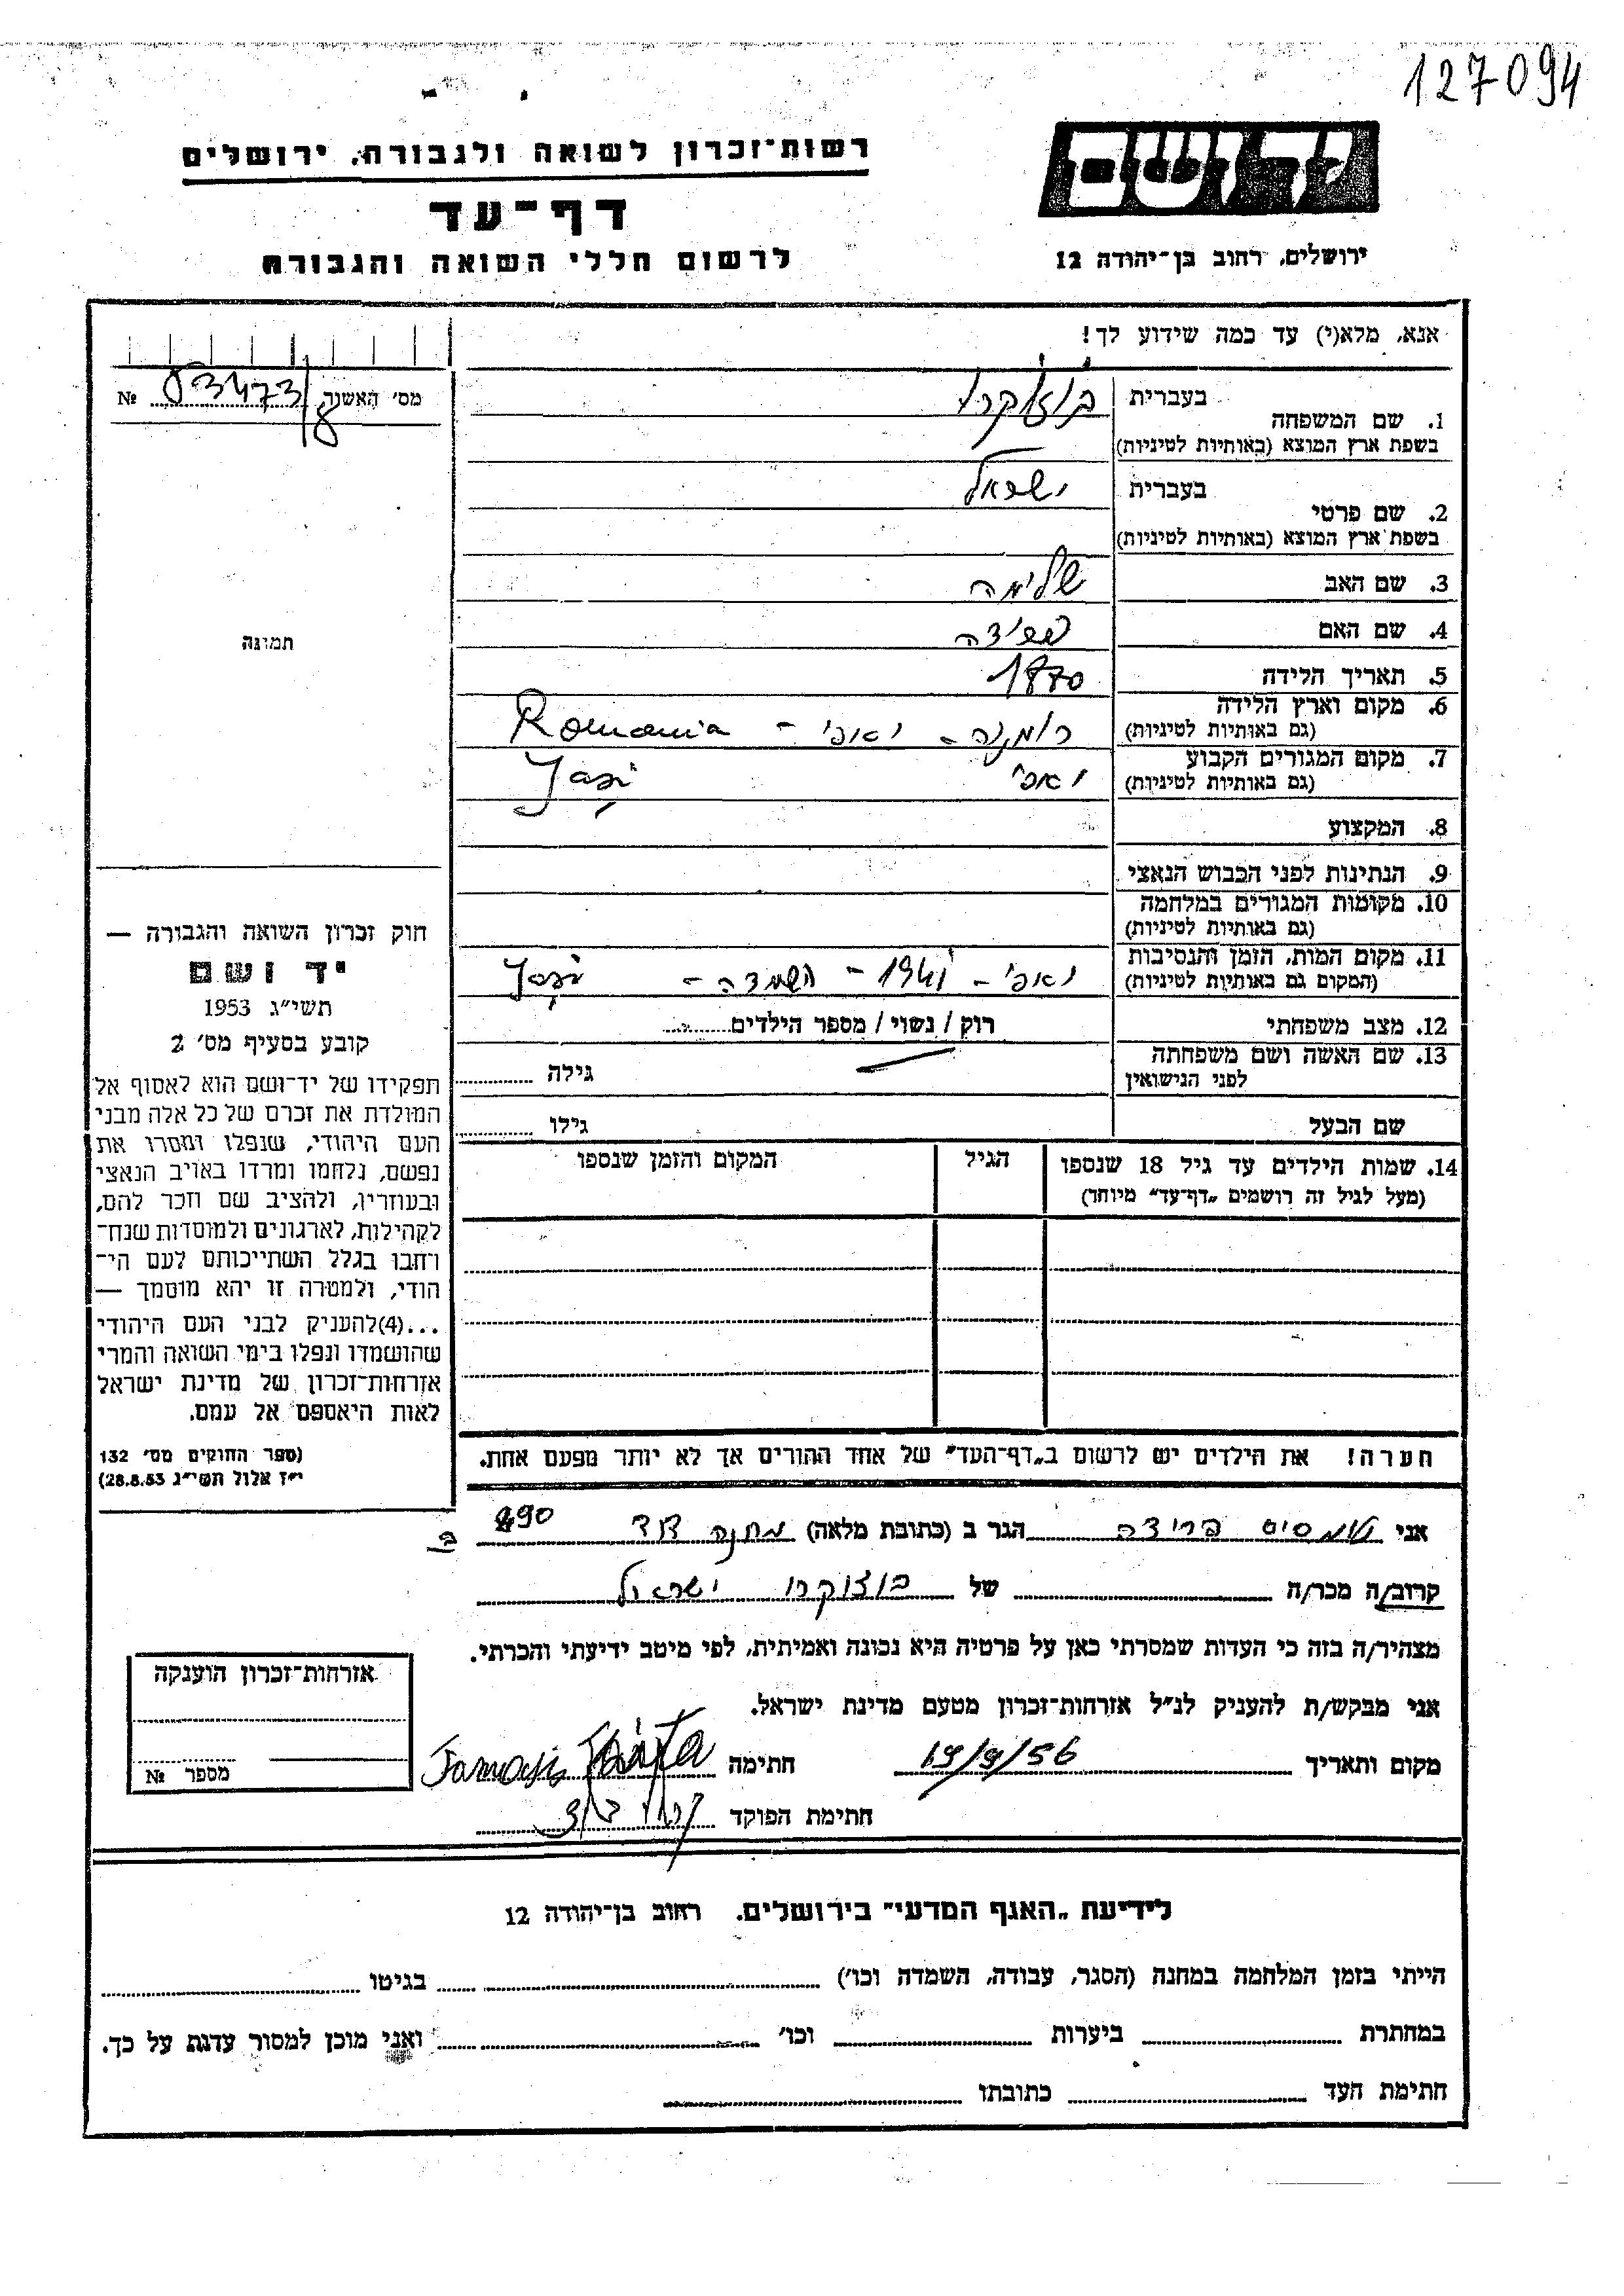 127094
יד ושם
רשות־זכרון לשואה ולגבורה, ירושלים
דף־עד
ירושלים, רחוב בן־יהודה 12
לרשום חללי השואה והגבורה
אנא, מלא(י) עד כמה שידוע לך!
מס' האשור № 53473/8
1. שם המשפחה
בעברית
בשפת ארץ המוצא (באותיות לטיניות)
2. שם פרטי
בעברית ישראל
בשפת ארץ המוצא (באותיות לטיניות)
3. שם האב שלימה
4. שם האם
5. תאריך הלידה 1870
6. מקום וארץ הלידה רומניה - יאסי - Romania
(גם באותיות לטיניות)
7. מקום המגורים הקבוע יאסי Jași
(גם באותיות לטיניות)
8. המקצוע
9. הנתינות לפני הכבוש הנאצי
10. מקומות המגורים במלחמה
(גם באותיות לטיניות)
11. מקום המות, הזמן והנסיבות יאסי - 1941 - השמדה - Jași
(המקום גם באותיות לטיניות)
12. מצב משפחתי רוק / נשוי / מספר הילדים
13. שם האשה ושם משפחתה
לפני הנישואין גילה
שם הבעל גילו
14. שמות הילדים עד גיל 18 שנספו
(מעל לגיל זה רושמים „דף־עד" מיוחד)
הגיל
המקום והזמן שנספו
תמונה
חוק זכרון השואה והגבורה —
יד ושם
תשי"ג 1953
קובע בסעיף מס' 2
תפקידו של יד־ושם הוא לאסוף אל
המולדת את זכרם של כל אלה מבני
העם היהודי, שנפלו ומסרו את
נפשם, נלחמו ומרדו באויב הנאצי
ובעוזריו, ולהציב שם וזכר להם,
לקהילות, לארגונים ולמוסדות שנח־
רחבו בגלל השתייכותם לעם הי־
הודי, ולמטרה זו יהא מוסמך —
...(4)להעניק לבני העם היהודי
שהושמדו ונפלו בימי השואה והמרי
אזרחות־זכרון של מדינת ישראל
לאות היאספם אל עמם.
(ספר החוקים מס' 132
י"ז אלול תשי"ג 28.8.53)
הערה! את הילדים יש לרשום ב„דף־העד" של אחד ההורים אך לא יותר מפעם אחת.
אני פרידה הגר ב (כתובת מלאה) מחנה דוד 490
קרוב/ה מכר/ה של בוצוקרו ישראל
מצהיר/ה בזה כי העדות שמסרתי כאן על פרטיה היא נכונה ואמיתית, לפי מיטב ידיעתי והכרתי.
אני מבקש/ת להעניק לנ"ל אזרחות־זכרון מטעם מדינת ישראל.
מקום ותאריך 19/9/56 חתימה
חתימת הפוקד
אזרחות־זכרון הוענקה
מספר №
לידיעת „האגף המדעי" בירושלים. רחוב בן־יהודה 12
הייתי בזמן המלחמה במחנה (הסגר, עבודה, השמדה וכו') בגיטו
במחתרת ביערות וכו' ואני מוכן למסור עדות על כך.
חתימת העד כתובתו